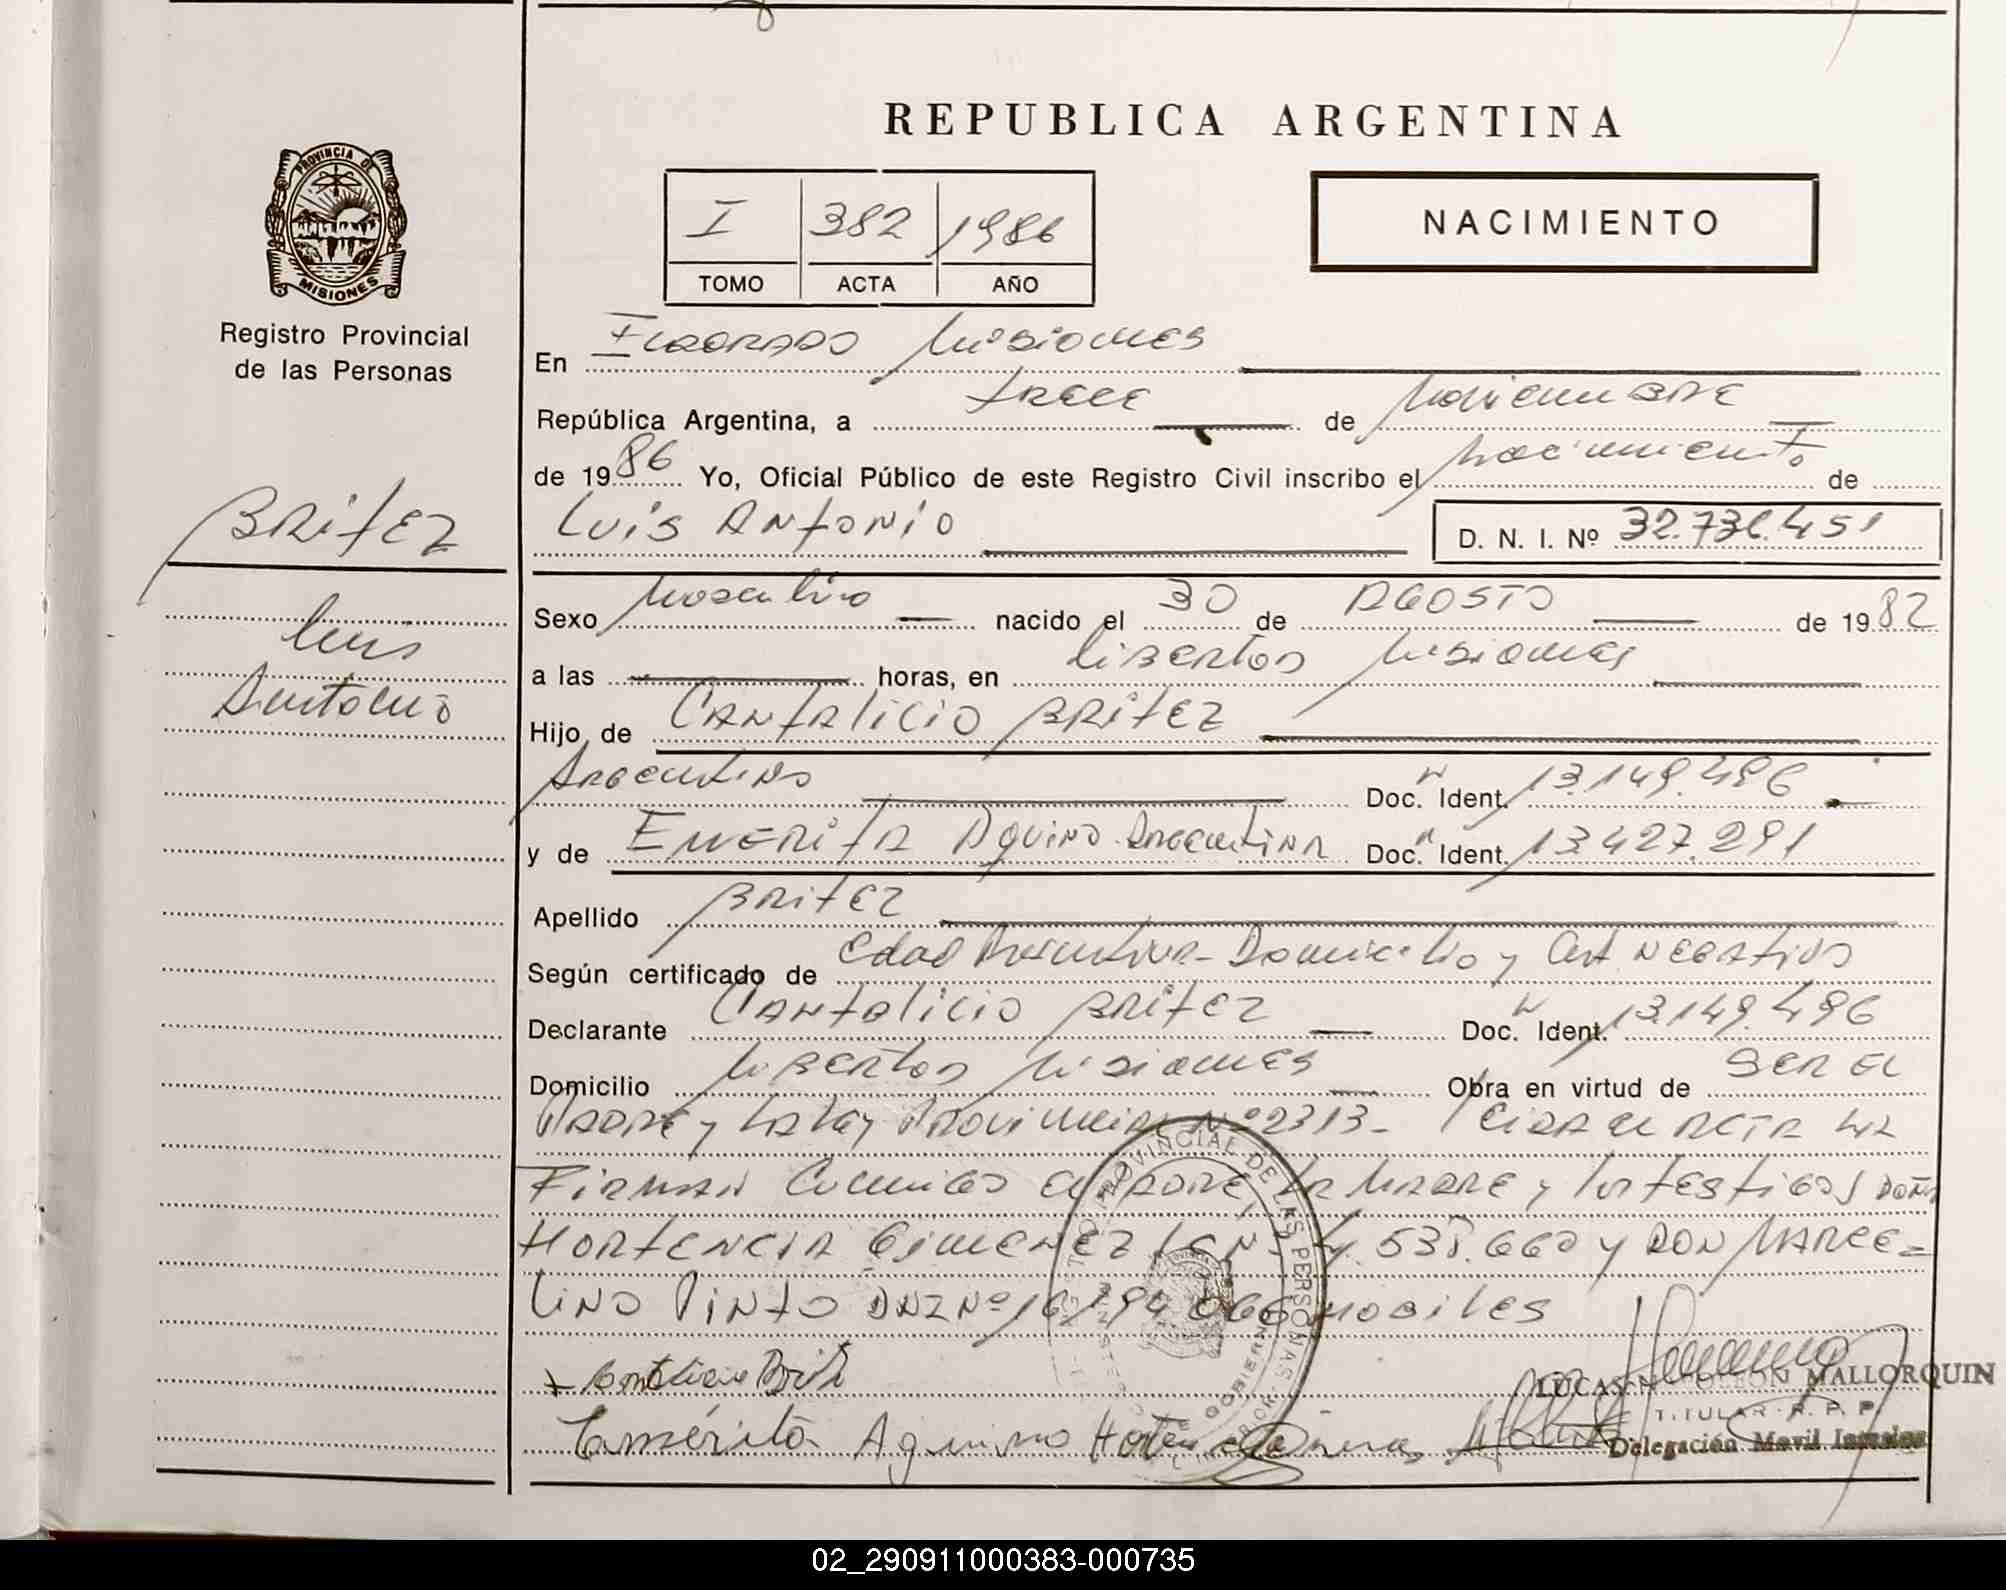 REPUBLICA ARGENTINA
PROVINCIA DE
MISIONES
Registro Provincial
de las Personas
I 382 1986
TOMO ACTA AÑO
NACIMIENTO
En Itacaruaré Misiones
República Argentina, a trece de Noviembre
de 1986 Yo, Oficial Público de este Registro Civil inscribo el Nacimiento de
Luis Antonio D. N. I. Nº 32.736.451
BRitEZ
Luis
Antonio
Sexo Masculino nacido el 30 de AGOSTO de 1982
a las horas, en Libertad Misiones
Hijo de CANtAliCiO BRitEZ
Argentino Doc. Ident. 13.149.496
y de EMERitA AQuiNO Argentina Doc. Ident. 13.427.291
Apellido BRitEZ
Según certificado de Edad Presuntiva - Domicilio y Cert. NEGAtivo
Declarante CANtAliCiO BRitEZ Doc. Ident. 13.149.496
Domicilio Libertad Misiones Obra en virtud de SER EL
PADRE y LA Ley PROViNCiAL Nº 2313 - LEiDA EL ACTA LA
FiRMAN CONmiGO el PADRE, LA MADRE y los tEStiGOS DOÑA
HORtENCiA GiMENEZ 4.535.660 y DON MARCE=
LiNO PiNtO DNI Nº 16.194.066 HABiLES
Cantalicio Brit
Emérita Aquino
LUCAS NAPOLEON MALLORQUIN
TITULAR R. P. P.
Delegación Movil
REGISTRO PROVINCIAL DE LAS PERSONAS
02_290911000383-000735